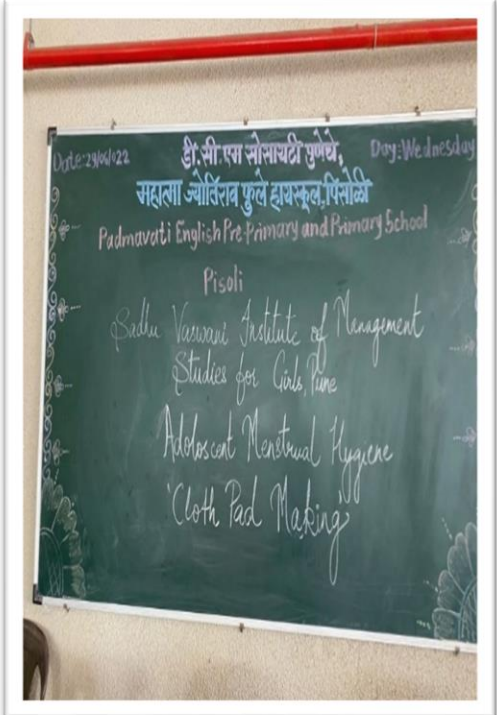 Date:29/06/022 डी.सी.एम सोसायटी पुणेचे, Day:Wednesday
महात्मा ज्योतिराव फुले हायस्कूल, पिसोळी
Padmavati English Pre-Primary and Primary School
Pisoli
Sadhu Vaswani Institute of Management
Studies for Girls, Pune
Adoloscent Menstrual Hygiene
'Cloth Pad Making'